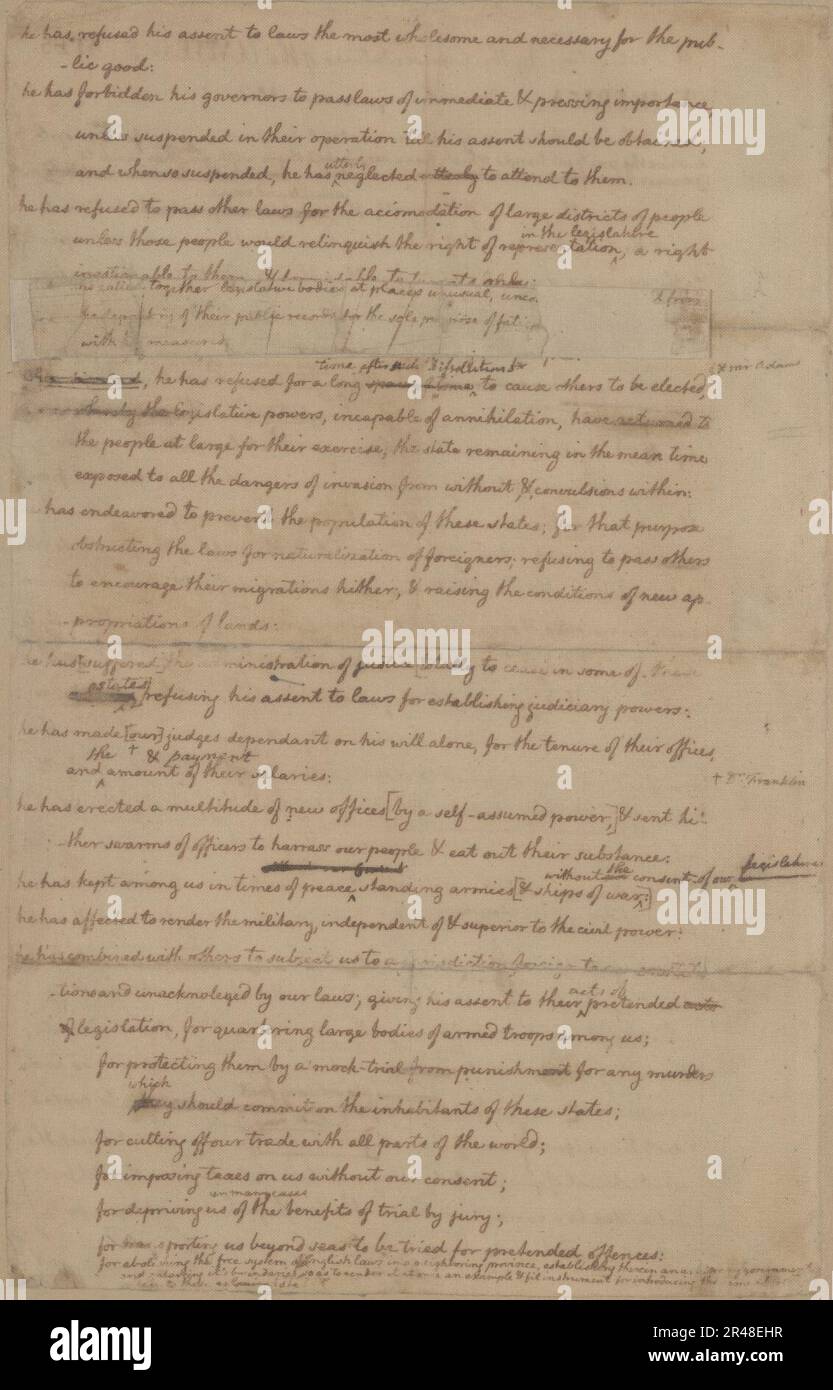 he has refused his assent to laws the most wholesome and necessary for the pub-
-lic good:
he has forbidden his governors to pass laws of immediate & pressing importance,
unless suspended in their operation till his assent should be obtained;
utterly
and when so suspended, he has neglected utterly to attend to them.
he has refused to pass other laws for the accomodation of large districts of people
in the legislature
unless those people would relinquish the right of representation, a right
inestimable to them, & formidable to tyrants only:
he called together legislative bodies at places unusual, unco
& from
the depository of their public records for the sole purpose of fati
with his measures
time after such dissolutions
he has refused for a long space of time to cause others to be elected,
& mr Adams
whereby the legislative powers, incapable of annihilation, have returned to
the people at large for their exercise, the state remaining in the mean time
exposed to all the dangers of invasion from without, & convulsions within:
has endeavored to prevent the population of these states; for that purpose
obstructing the laws for naturalization of foreigners; refusing to pass others
to encourage their migrations hither; & raising the conditions of new ap-
-propriations of lands:
he has [suffered] the administration of justice [totally to cease in some of these
states]
refusing his assent to laws for establishing judiciary powers:
he has made [our] judges dependant on his will alone, for the tenure of their offices,
the + & payment
and amount of their salaries:
+ Dr. Franklin
he has erected a multitude of new offices [by a self-assumed power,] & sent hi-
-ther swarms of officers to harrass our people & eat out their substance:
without the consent of our legislatures
he has kept among us in times of peace standing armies [& ships of war:]
he has affected to render the military, independent of & superior to the civil power:
he has combined with others to subject us to a jurisdiction foreign to our constitu-
-tions and unacknoleged by our laws; giving his assent to their pretended acts
acts of
of legislation, for quartering large bodies of armed troops among us;
for protecting them by a mock-trial from punishment for any murders
which
they should commit on the inhabitants of these states;
for cutting off our trade with all parts of the world;
for imposing taxes on us without our consent;
in many cases
for depriving us of the benefits of trial by jury;
for transporting us beyond seas to be tried for pretended offences:
for abolishing the free system of English laws in a neighboring province, establishing therein an arbitrary government
and enlarging it's boundaries so as to render it at once an example & fit instrument for introducing the same
alamy
2R48EHR
www.alamy.com